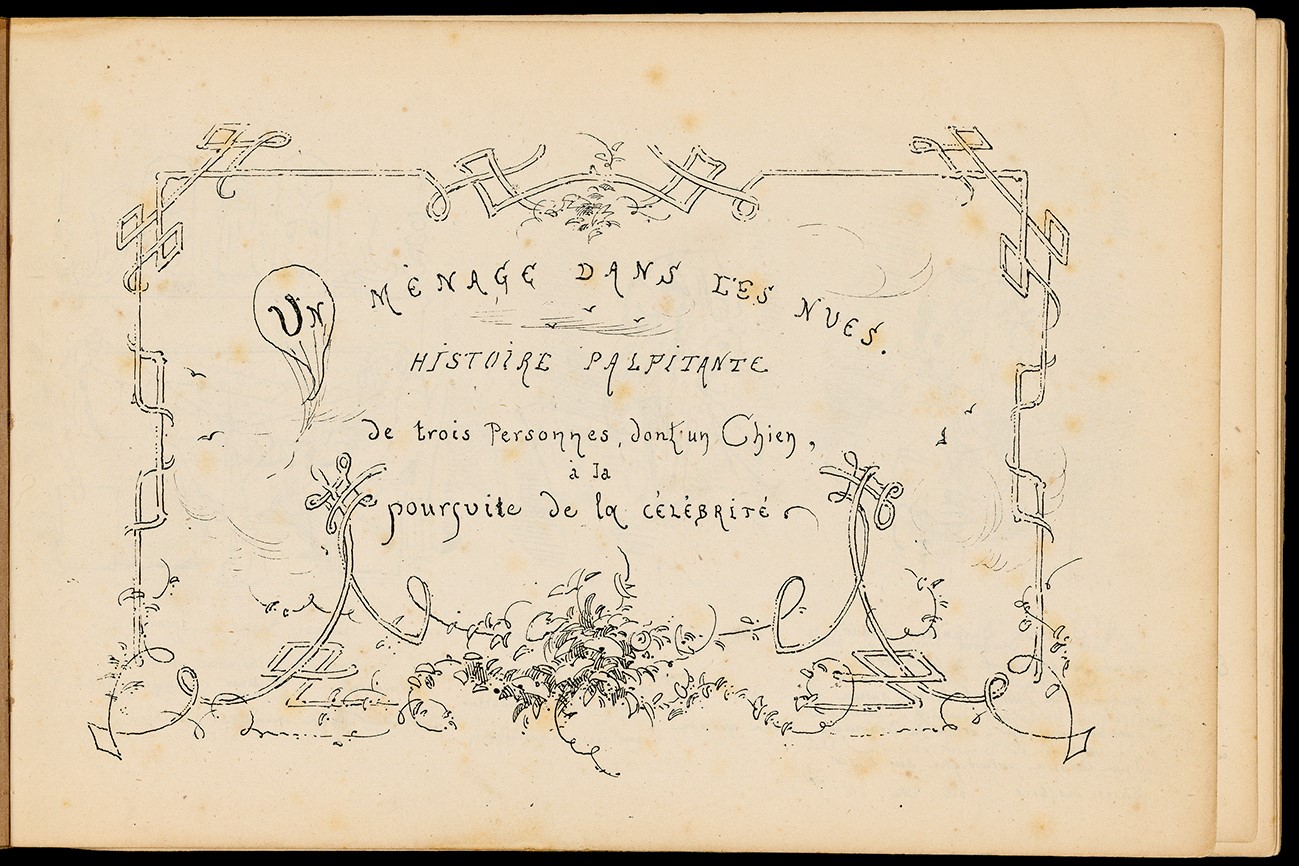 UN MÉNAGE DANS LES NUES.
HISTOIRE PALPITANTE
de trois Personnes, dont un Chien,
à la
poursuite de la CÉLÉBRITÉ